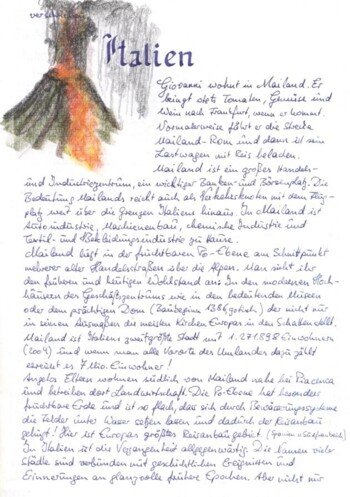 Italien
Giovanni wohnt in Mailand. Er
bringt stets Tomaten, Gemüse und
Wein nach Frankfurt, wenn er kommt.
Normalerweise fährt er die Strecke
Mailand-Rom und dann ist sein
Lastwagen mit Reis beladen.
Mailand ist ein großes Handels-
und Industriezentrum, ein wichtiger Banken- und Börsenplatz. Die
Bedeutung Mailands reicht auch als Verkehrsknoten mit dem Flug-
platz weit über die Grenzen Italiens hinaus. In Mailand ist
Autoindustrie, Maschinenbau, chemische Industrie und
Textil- und Bekleidungsindustrie zu Hause.
Mailand liegt in der fruchtbaren Po-Ebene am Schnittpunkt
mehrerer alter Handelsstraßen über die Alpen. Man sieht ihr
den früheren und heutigen Wohlstand an: In den modernen Hoch-
häusern des Geschäftszentrums wie in den bedeutenden Museen
oder dem prächtigen Dom (Baubeginn 1386, gotisch) der nicht nur
in seinen Ausmaßen die meisten Kirchen Europas in den Schatten stellt.
Mailand ist Italiens zweitgrößte Stadt mit 1.271.898 Einwohnern
(2004) und wenn man alle Vororte des Umlandes dazu zählt
erreicht es 7 Mio. Einwohner!
Angelos Eltern wohnen südlich von Mailand nahe bei Piacenza
und betreiben dort Landwirtschaft. Die Po-Ebene hat besonders
fruchtbare Erde und ist so flach, dass sich durch Bewässerungssysteme
die Felder unter Wasser setzen lassen und dadurch der Reisanbau
gelingt! Hier ist Europas größtes Reisanbaugebiet.
In Italien ist die Vergangenheit allgegenwärtig. Die kannen vieler
Städte sind verbunden mit geschichtlichen Ereignissen und
Erinnerungen an glanzvolle frühere Epochen. Aber nicht nur